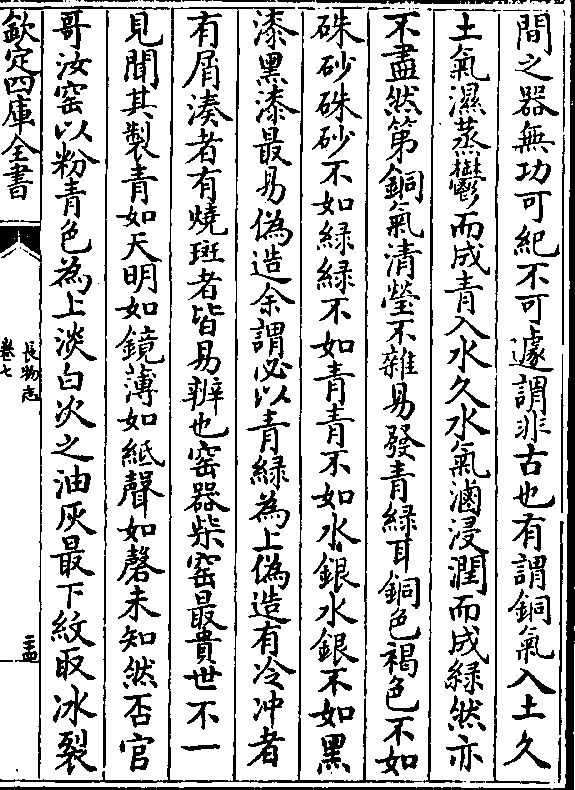 間之器無功可紀不可遽謂非古也有謂銅氣入土久
土氣濕蒸鬱而成青入水久水氣滷浸潤而成緑然亦
不盡然第銅氣清瑩不雜易發青緑耳銅色褐色不如
硃砂硃砂不如緑緑不如青青不如水銀水銀不如黑
漆黑漆最易偽造余謂必以青緑為上偽造有冷冲者
有屑湊者有燒斑者皆易辨也窑器柴窑最貴世不一
見聞其製青如天明如鏡薄如紙聲如磬未知然否官
哥汝窑以粉青色為上淡白次之油灰最下紋取冰裂
欽定四庫全書
長物志
卷七
三